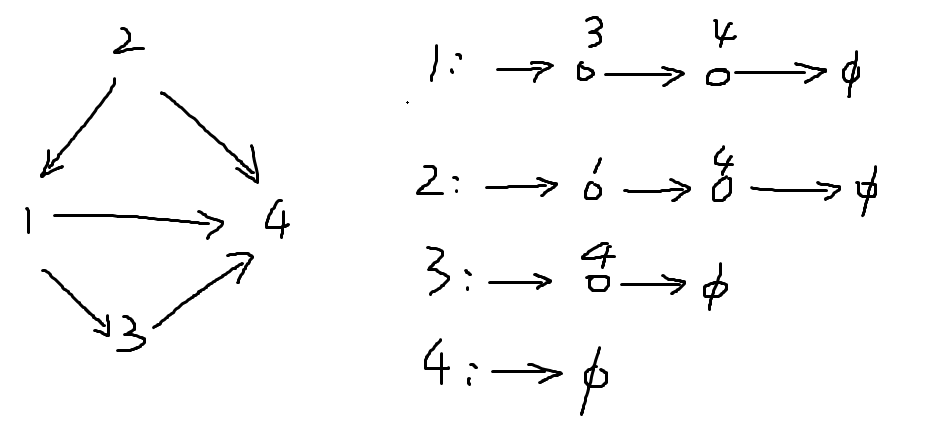 2
1
4
3
1: → 3 → 4 → ϕ
2: → 1 → 4 → ϕ
3: → 4 → ϕ
4: → ϕ